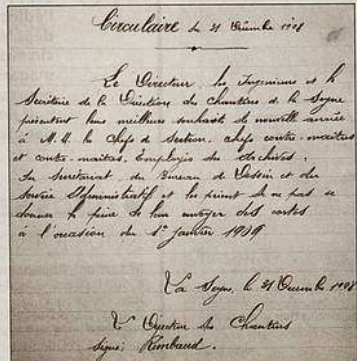 Circulaire du 31 Décembre 1908
Le Directeur, les Ingénieurs et le
Secrétaire de la Direction des Chantiers de la Seyne
présentent leurs meilleurs souhaits de nouvelle année
à M.M. les Chefs de Section, chefs contre-maîtres
et contre-maîtres, Employés des Archives,
du Secrétariat, du Bureau de Dessin et du
Service Administratif et les prient de ne pas se
donner la peine de leur envoyer des cartes
à l'occasion du 1er Janvier 1909
La Seyne, le 31 Décembre 1908
Le Directeur des Chantiers
Signé: Rimbaud.